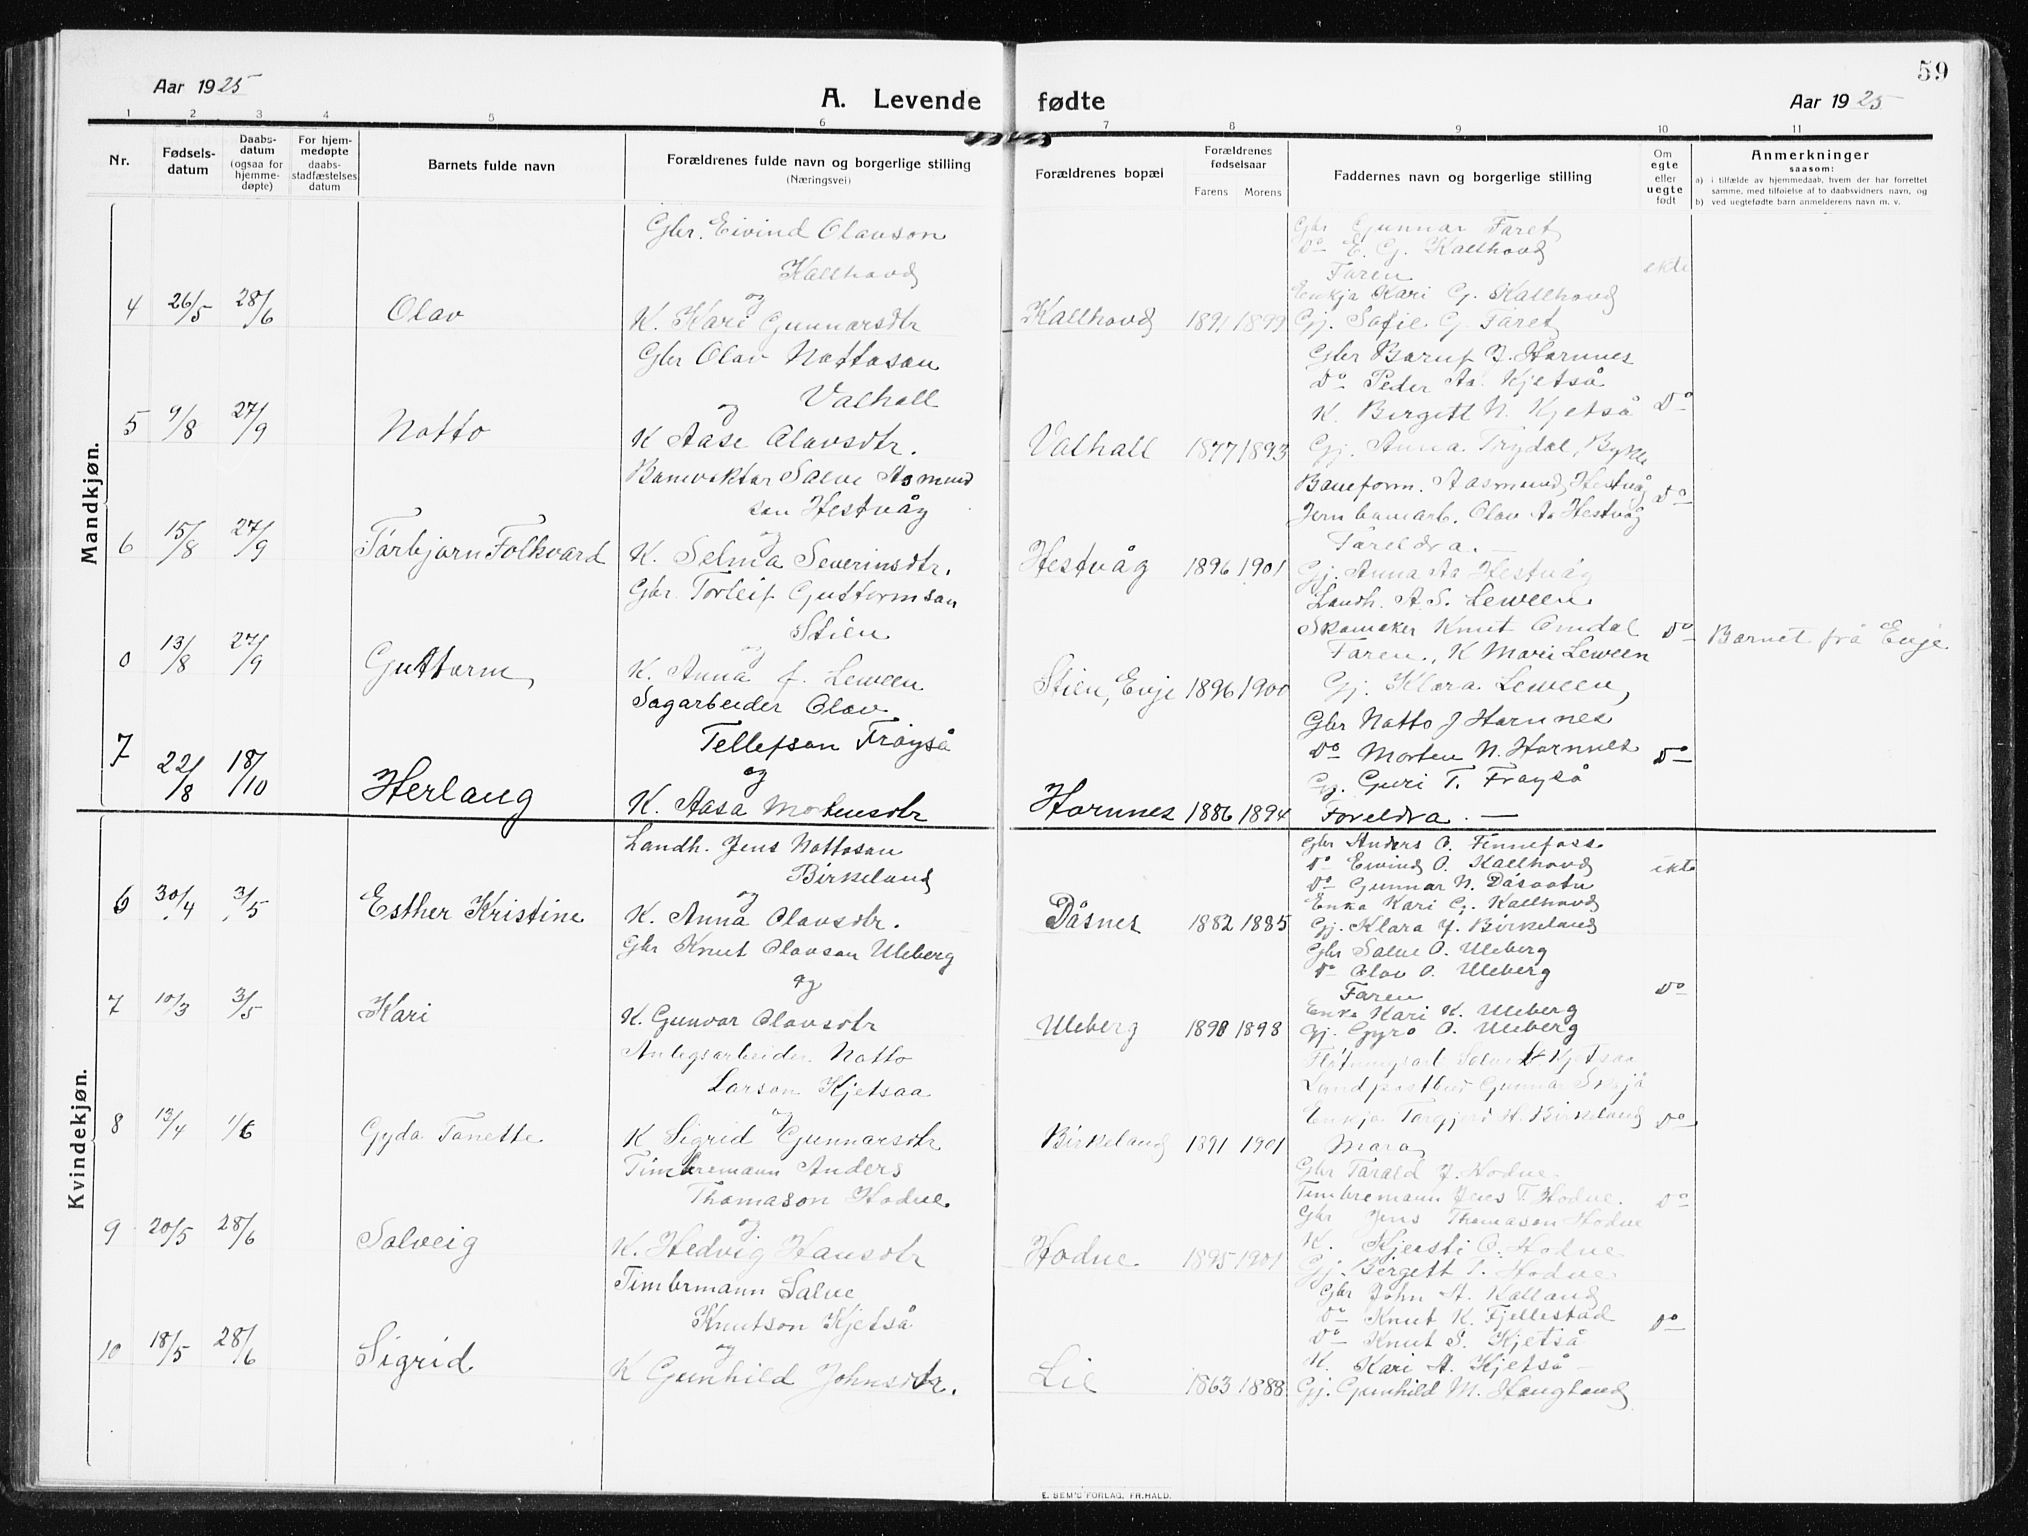 59
Aar 1925
A. Levende fødte
Aar 1925
1 2 3 4 5 6 7 8 9 10 11
Nr.
Fødsels-
datum
Daabs-
datum
(ogsaa for
hjemme-
døpte)
For hjem-
medøpte
daabs-
stadfæstelses
datum
Barnets fulde navn
Forældrenes fulde navn og borgerlige stilling
(Næringsvei)
Forældrenes bopæl
Forældrenes
fødselsaar
Farens Morens
Faddernes navn og borgerlige stilling
Om
egte
eller
uegte
født
Anmerkninger
saasom:
a) i tilfælde av hjemmedaab, hvem der har forrettet
samme, med tilføielse af to daabsvidners navn, og
b) ved uegtefødte barn anmelderens navn m. v.
Mandkjøn.
4 26/5 28/6 Olav
Gbr. Eivind Olavson
Kallhovd
og
K. Kari Gunnarsdtr
Kallhovd 1891 1899
Gbr Gunnar Faret
Do E. G. Kallhovd
Faren
Enkja Kari G. Kallhovd
Gj. Sofie G. Faret
ekte
5 9/8 27/9 Notto
Gbr Olav Nottoson
Valhall
og
K Aase Olavsdtr.
Valhall 1877 1893
Gbr Bernt J. Hornnes
Do Peder Aa. Kjetså
K. Birgett N. Kjetså
Gj. Anna Trydal, Bykle
Do
6 15/8 27/9 Torbjørn Folkvard
Banevaktar Salve Asmund
son Hestvåg
og
K. Selma Severinsdtr.
Hestvåg 1896 1901
Baneform. Aasmund Hestvåg
Jernbanearb. Olav Aa Hestvåg
Foreldra. —
Gj. Anna Aa Hestvåg
Do
0 13/8 27/9 Guttorm
Gbr. Torleif Guttormson
Stien
og
K. Anna f. Leween
Stien, Evje 1896 1900
Landh. A. S. Leween
Skomaker Knut Omdal
Faren., K Mari Leween
Gj. Klara Leween,
Do
Barnet frå Evje
7 22/8 18/10 Herlaug
Sagarbeider Olav
Tellefson Frøyså
og
K. Aasa Mortensdtr
Hornnes 1886 1894
Gbr Notto J Hornnes
Do Morten N. Hornnes
Gj. Guri T. Frøyså
Foreldra. —
Do
Kvindekjøn.
6 30/4 3/5 Esther Kristine
Landh. Jens Nottoson
Birkeland
og
K. Anna Olavsdtr.
Dåsnes 1882 1885
Gbr Anders O. Finnefoss
Do Eivind O. Kallhovd
Do Gunnar N. Dåsvatn
Enka Kari G. Kallhovd
Gj. Klara J. Birkeland
ekte
7 10/3 3/5 Kari
Gbr Knut Olavson Uleberg
og
K. Gunvor Olavsdtr
Uleberg 1890 1898
Gbr Salve O. Uleberg
Do Olav O. Uleberg
Faren
Enka Kari K. Uleberg
Gj. Gyro O. Uleberg
Do
8 13/4 1/6 Gyda Tanette
Anlegsarbeider Notto
Larson Kjetsaa
og
K Sigrid Gunnarsdtr
Birkeland 1891 1901
Fløtningsarb Salve Kjetsaa
Landpostbud Gunnar Skejå
Enkja Torgjerd H. Birkeland
Mora
Do
9 20/5 28/6 Solveig
Timbremann Anders
Thomason Hodne
og
K. Hedvig Hansdtr
Hodne 1895 1901
Gbr Tarald J. Hodne.
Timbremann Jens T. Hodne.
Gbr Jens Thomason Hodne
K. Kjersti O. Hodne
Gj. Bergett T. Hodne
Do
10 18/5 28/6 Sigrid
Timbrmann Salve
Knutson Kjetså
og
K Gunhild Johnsdtr.
Lie 1863 1888
Gbr John A. Kalland
Do Knut K. Fjellestad
Do Knut S. Kjetså
K. Kari A. Kjetså
Gj. Gunhild M. Haugland
Do
E. SEM'S FORLAG, FR.HALD.